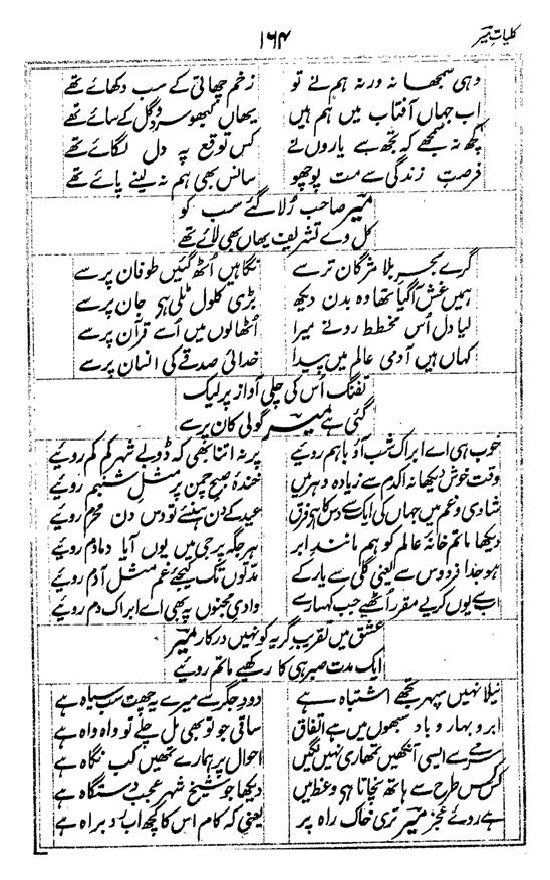 کلیات میر
۱۶۴
وہی سمجھا نہ ورنہ ہم نے تو زخم چھاتی کے سب دکھائے تھے
اب جہاں آفتاب میں ہم ہیں یھاں کبھو سرو و گل کے سائے تھے
کچھ نہ سمجھے کہ تجھ سے یاروں نے کس توقع پہ دل لگائے تھے
فرصت زندگی سے مت پوچھو سانس بھی ہم نہ لینے پائے تھے
میر صاحب رلا گئے سب کو
کل وے تشریف یھاں بھی لائے تھے
گرے بحر بلا مژگان تر سے نگاہیں اٹھ گئیں طوفان پر سے
ہمیں غش آگیا تھا وہ بدن دیکھ بڑی کلول ٹلی ہی جان پر سے
لیا دل اس مخطط رو نے میرا اٹھا لوں میں اسے قرآن پر سے
کہاں ہیں آدمی عالم میں پیدا خدائی صدقے کی انسان پر سے
تفنگ اس کی چلی آواز پر لیک
گئی ہے میر گولی کان پر سے
خوب ہی اے ابر اک شب آؤ باہم روئیے پر نہ اتنا بھی کہ ڈوبے شہر کم کم روئیے
وقت خوش دیکھا نہ اکدم سے زیادہ دہر میں خندۂ صبح چمن پر مثل شبنم روئیے
شادی و غم میں جہاں کی ایک سے دس کا ہی فرق عید کے دن ہنسئے تو دس دن محرم روئیے
دیکھا ماتم خانۂ عالم کو ہم مانند ابر ہر جگہ پر جی میں یوں آیا دمادم روئیے
ہو جدا فردوس سے یعنی گلی سے یار کے مدتوں تک کیجئے غم مثل آدم روئیے
اب سے یوں کریے مقرر اٹھے جب کہسار سے وادی مجنوں پہ بھی اے ابر اک دم روئیے
عشق میں تقریب گریہ گو نہیں درکار میر
ایک مدت صبر ہی کا رکھیے ماتم روئیے
نیلا نہیں سپہر تجھے اشتباہ ہے دود جگر سے میرے یہ چھت سب سیاہ ہے
ابر و بہار و باد سبھوں میں ہے اتفاق ساقی جو تو بھی مل چلے تو واہ واہ ہے
سرمے سے ایسی آنکھیں تمھاری نہیں لگیں احوال پر ہمارے تمھیں کب نگاہ ہے
کس کس طرح سے ہاتھ نچاتا ہی وعظ میں دیکھا جو شیخ شہر عجب دستگاہ ہے
ہے روئے عجز میر تری خاک راہ پر یعنی کہ کام اس کا کچھ اب رو براہ ہے